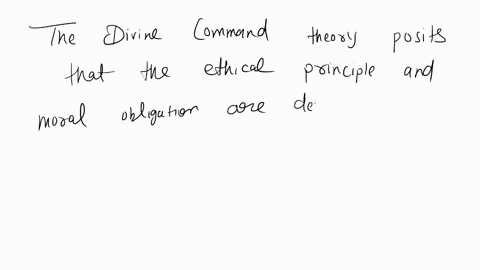 The Divine Command theory posits
that the ethical principle and
moral obligation are de